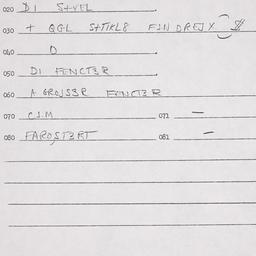 020 DI S+VEL
030 + QGL S+TIKL8 FIN DREI X
040 O
050 DI FENCT3R
060 A GROJS3R FENCT3R
070 C.S.M 071 —
080 FAROST3RT 081 —